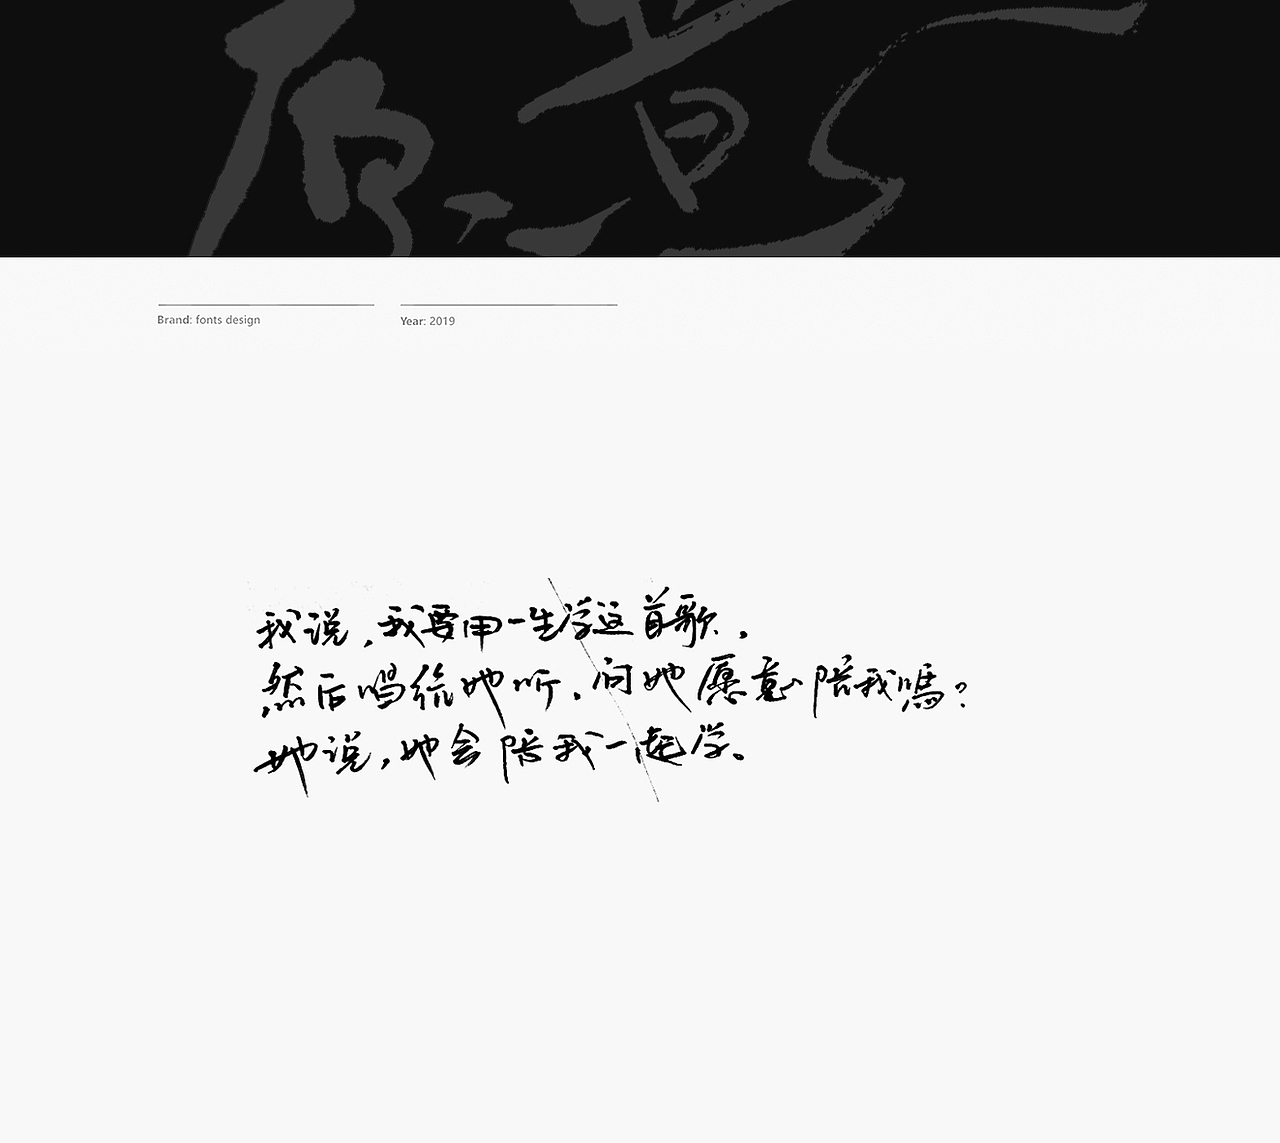 愿意
Brand: fonts design
Year: 2019
我说，我要用一生学这首歌，
然后唱给她听，问她愿意陪我嗎？
她说，她会陪我一起学。